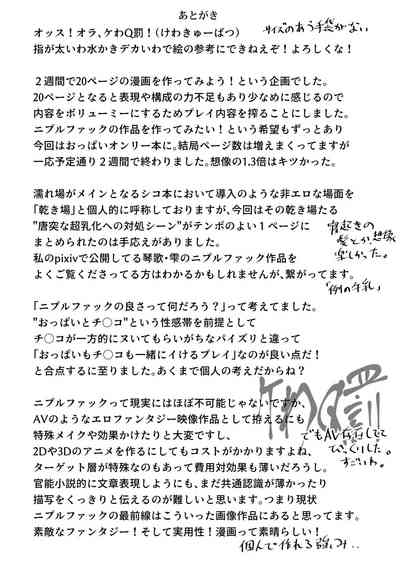 あとがき
オッス！オラ、ケわQ罰！（けわきゅーばつ）
サイズのあう手袋がない
指が太いわ水かきデカいわで絵の参考にできねえぞ！よろしくな！
２週間で20ページの漫画を作ってみよう！という企画でした。
20ページとなると表現や構成の力不足もあり少なめに感じるので
内容をボリューミーにするためプレイ内容を搾ることにしました。
ニプルファックの作品を作ってみたい！という希望もずっとあり
今回はおっぱいオンリー本に。結局ページ数は増えまくってますが
一応予定通り２週間で終わりました。想像の1.3倍はキツかった。
濡れ場がメインとなるシコ本において導入のような非エロな場面を
「乾き場」と個人的に呼称しておりますが、今回はその乾き場たる
"唐突な超乳化への対処シーン"がテンポのよい１ページに
まとめられたのは手応えがありました。
寝起きの
髪とか想像
楽しかった。
私のpixivで公開してる琴歌・雫のニプルファック作品を
よくご覧くださってる方はわかるかもしれませんが、繋がってます。
「例の牛乳」
「ニプルファックの良さって何だろう？」って考えてました。
"おっぱいとチ〇コ"という性感帯を前提として
チ〇コが一方的にヌいてもらいがちなパイズリと違って
「おっぱいもチ〇コも一緒にイけるプレイ」なのが良い点だ！
と合点するに至りました。あくまで個人の考えだからね？
ケわQ罰
ニプルファックって現実にはほぼ不可能じゃないですか、
AVのようなエロファンタジー映像作品として拵えるにも
特殊メイクや効果かけたりと大変ですし、
でもAV存在してて
びっくりした。
すごいわ。
2Dや3Dのアニメを作るにしてもコストがかかりますよね、
ターゲット層が特殊なのもあって費用対効果も薄いだろうし。
官能小説的に文章表現しようにも、まだ共通認識が薄かったり
描写をくっきりと伝えるのが難しいと思います。つまり現状
ニプルファックの最前線はこういった画像作品にあると思ってます。
素敵なファンタジー！そして実用性！漫画って素晴らしい！
個人で作れる強み‥